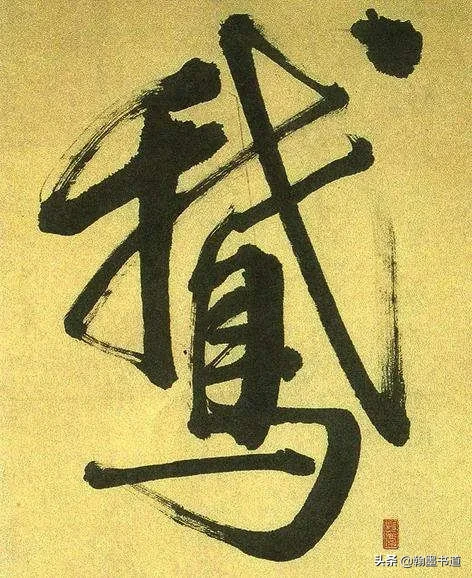 鵞
头条 @翰墨书道